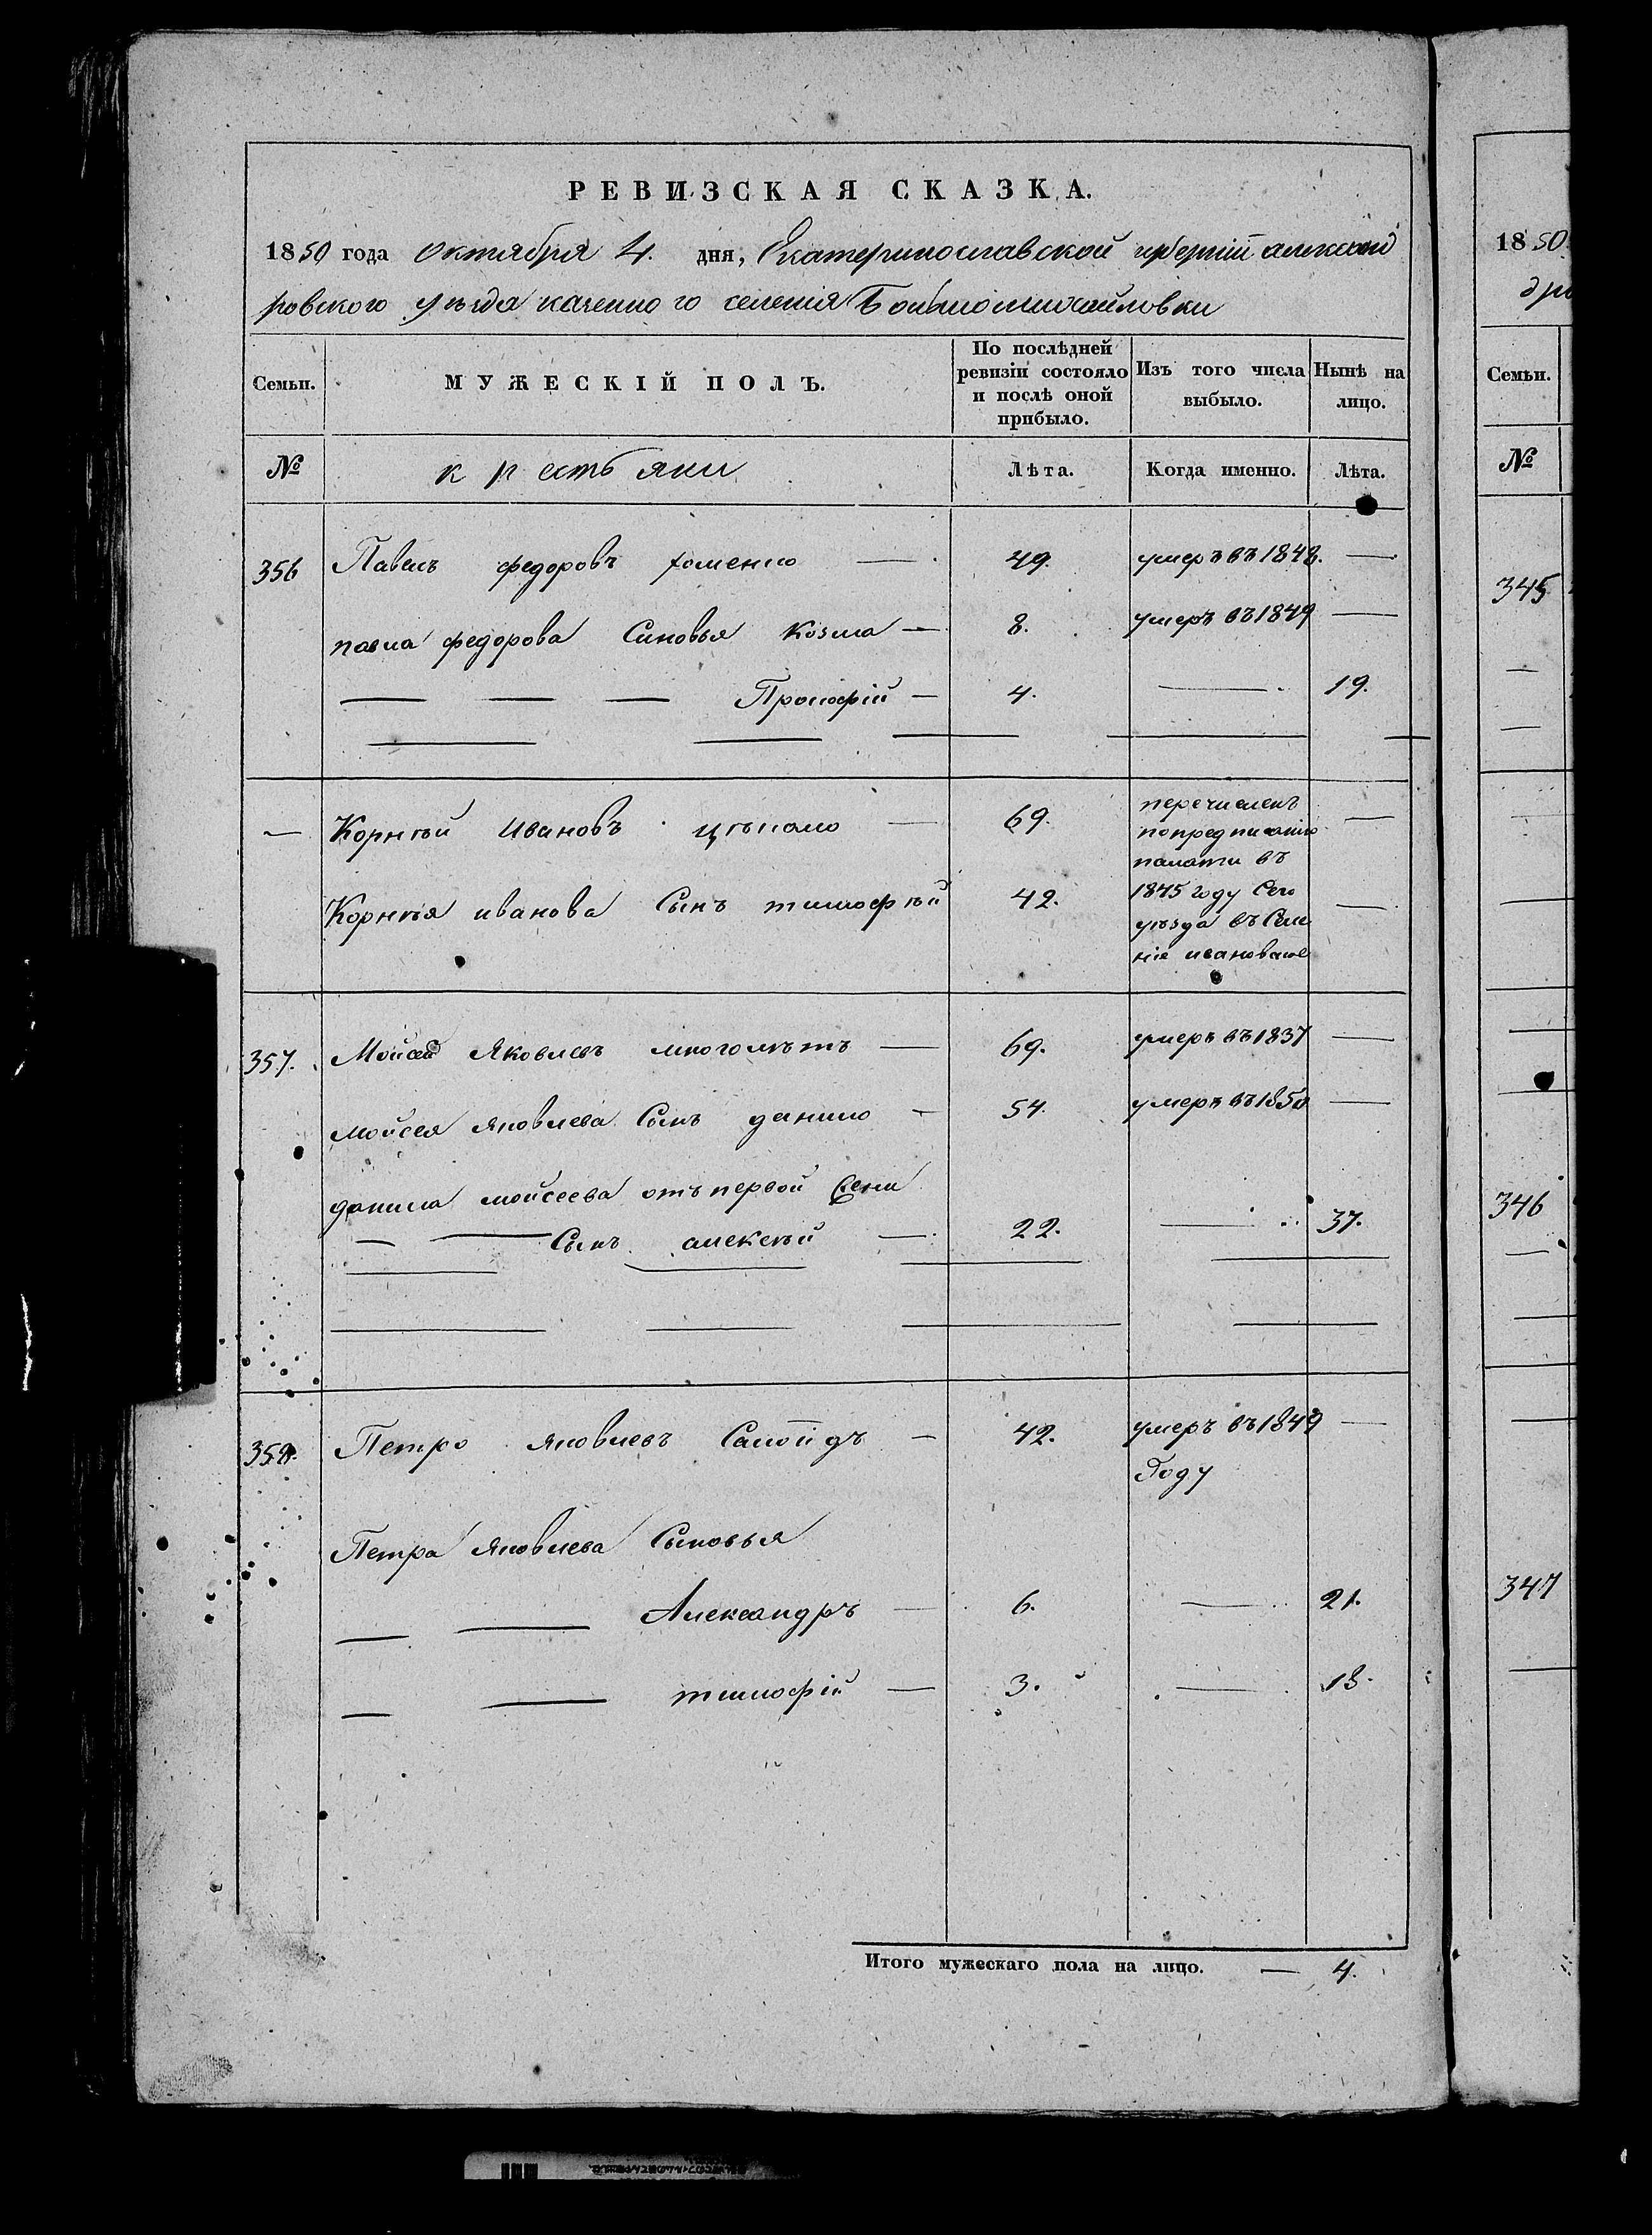 РЕВИЗСКАЯ СКАЗКА.
1850 года октября 4. дня, Екатеринославской губерній александ
ровского уѣзда казенного селенія Большомихайловки
Семьи. МУЖЕСКІЙ ПОЛЪ. По послѣдней ревизіи состояло и послѣ оной прибыло. Изъ того числа выбыло. Нынѣ на лицо.
№ крестьяни Лѣта. Когда именно. Лѣта.
356 Павелъ федоровъ хоменко — 49. умеръ въ 1848. —
павла федорова Сыновья Козма — 8. умеръ въ 1849 —
— — — Прокофій — 4. — 19.
— Корнѣй Ивановъ — 69. перечисленъ —
по предписанію
палати въ
Корнѣя иванова Сынъ тимофѣй 42. 1845 году Сего —
уѣзда въ Селе
ніе
357. Мойсей Яковлевъ многолѣтъ — 69. умеръ въ 1837 —
мойсея яковлева Сынъ данило — 54. умеръ въ 1850 —
данила мойсеева отъ первой жени
— — Сынъ алексѣй — 22. — 37.
358. Петро яковлевъ — 42. умеръ въ 1849 —
Году
Петра яковлева Сыновья
— — Александръ — 6. — 21.
— — тимофій — 3. — 18.
Итого мужескаго пола на лицо. — 4.
1850
дро
Семьи.
№
345
346
347